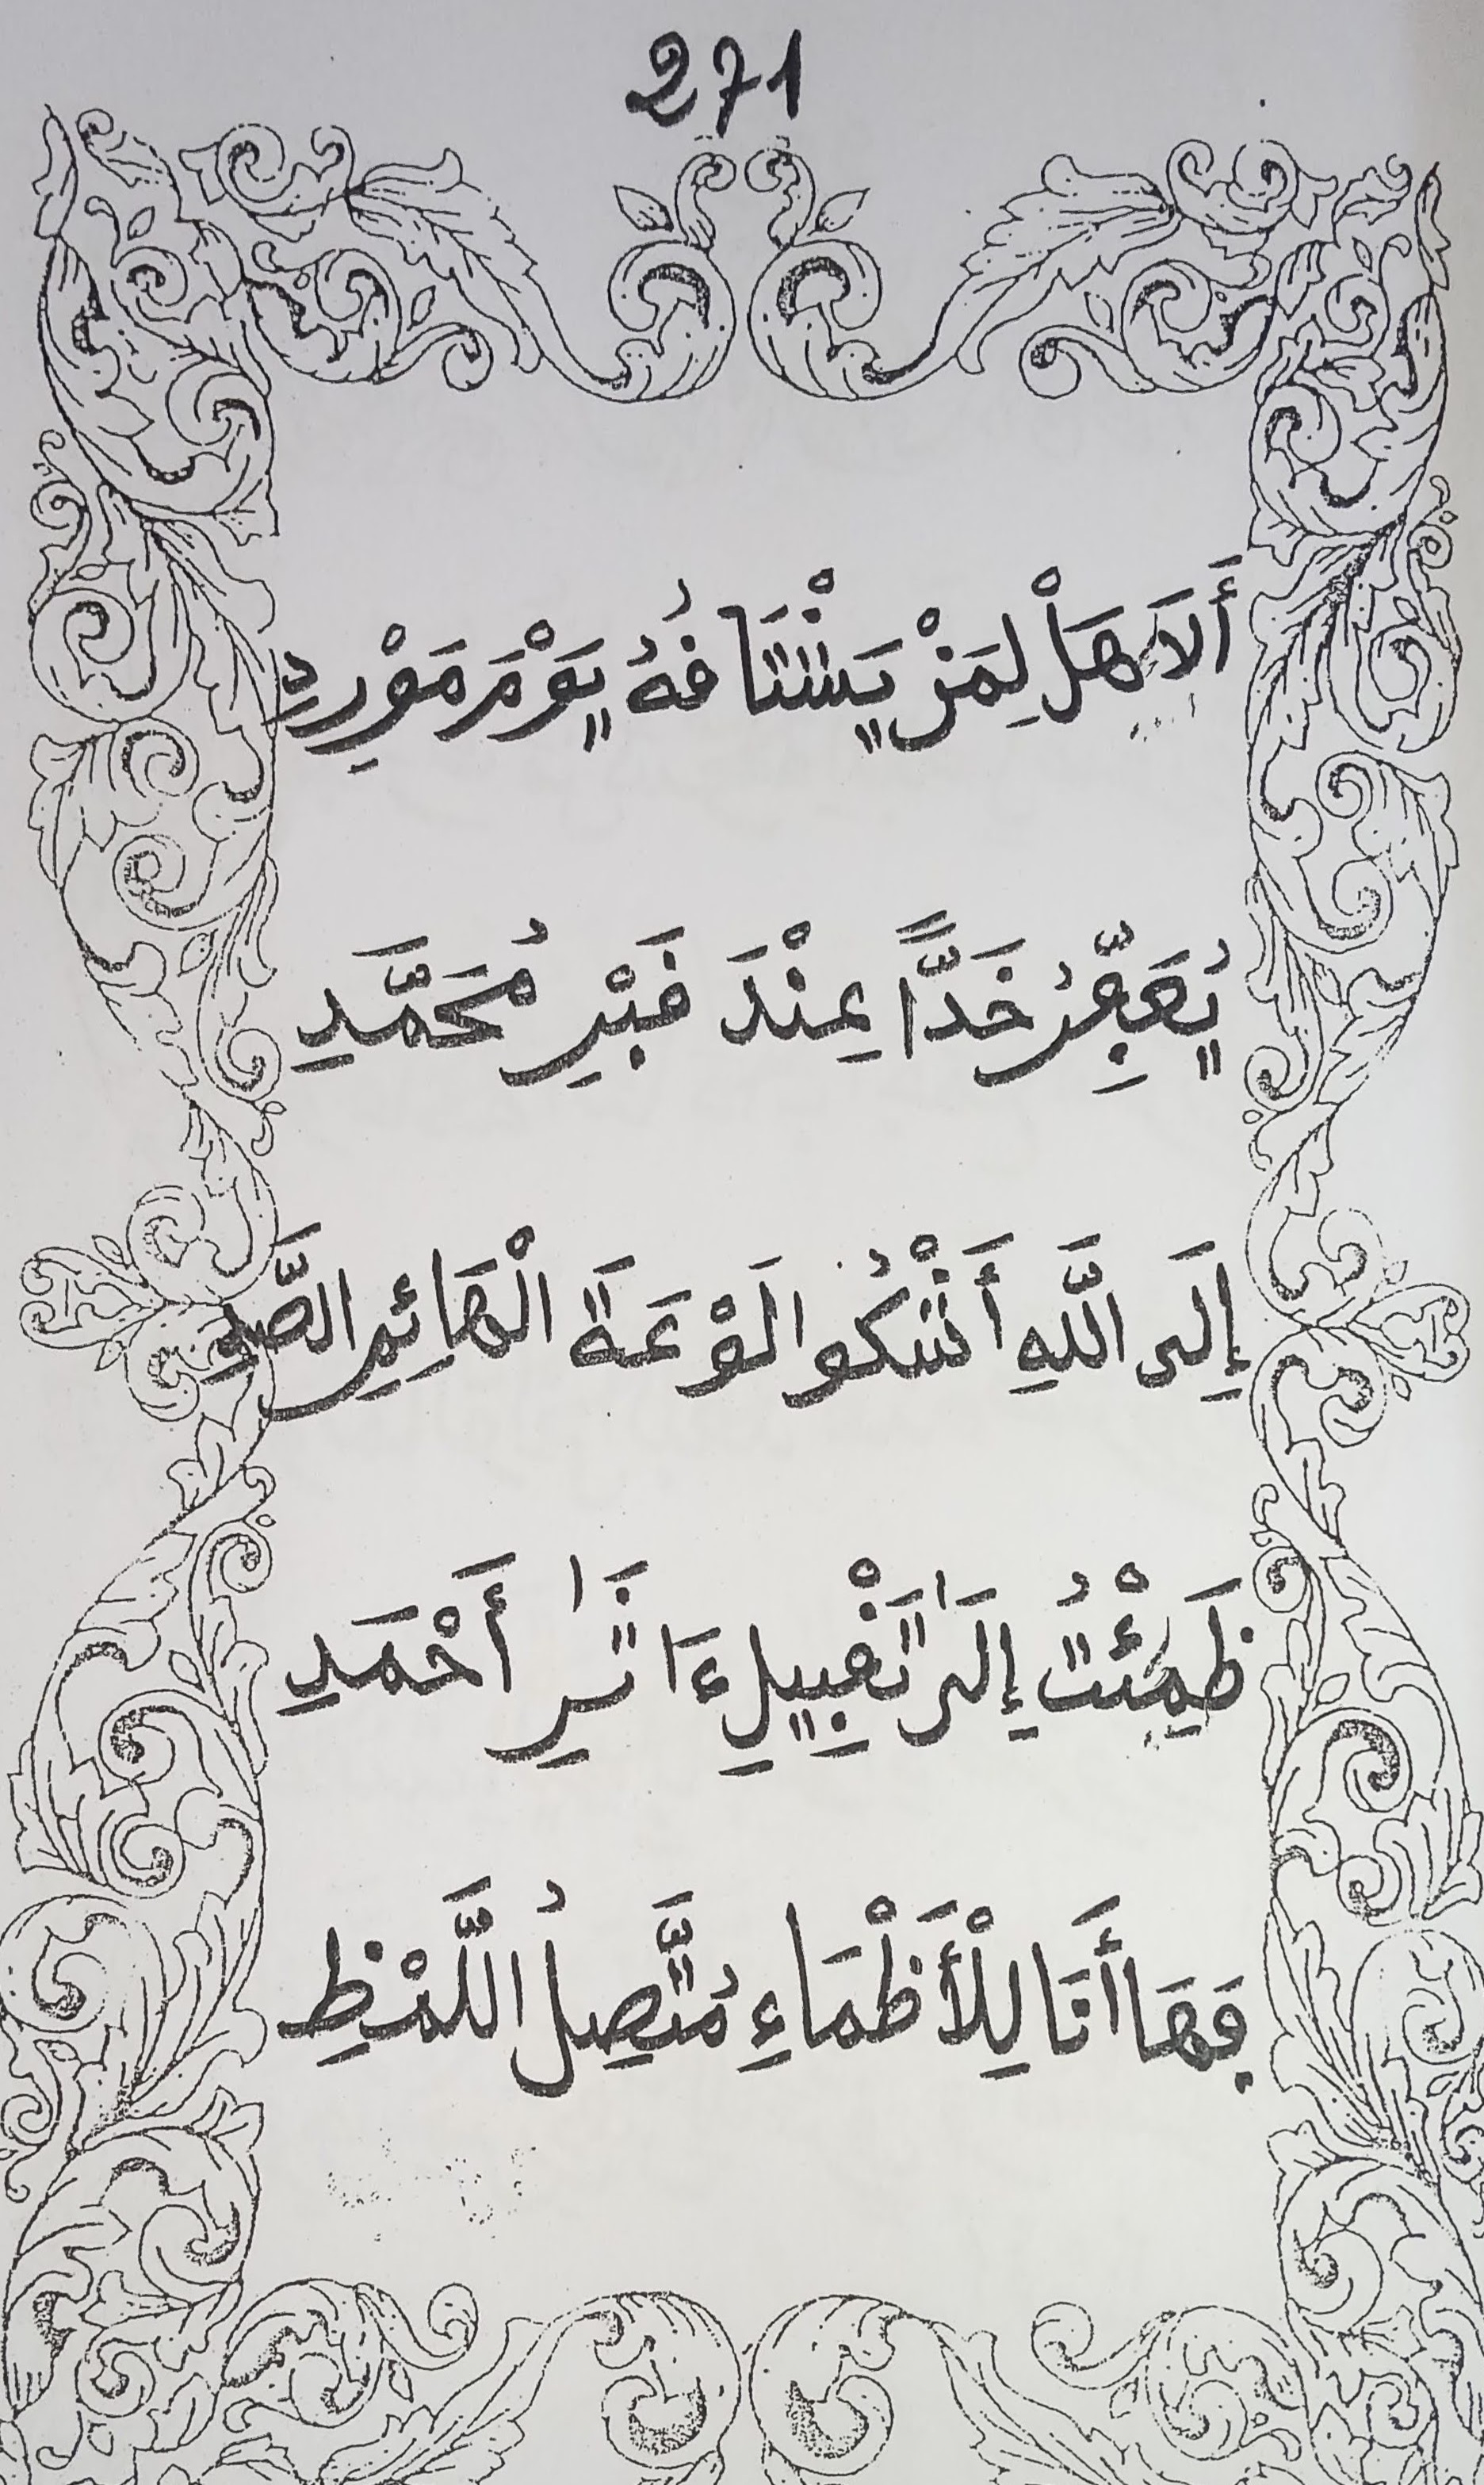 271
أَلاَ هَلْ لِمَنْ يَشْتَاقُهُ يَوْمَ مَوْرِدِ
يُعَفِّرُ خَدًّا عِنْدَ قَبْرِ مُحَمَّدِ
إِلَى اللَّهِ أَشْكُوا لَوْعَةَ الْهَائِمِ الصَّدِ
ظَمِئْتُ إِلَىٰ تَقْبِيلِ ءَاثَٰرِ أَحْمَدِ
فَهَا أَنَا لِلْأَظْمَاءِ مُتَّصِلُ اللَّحْظِ